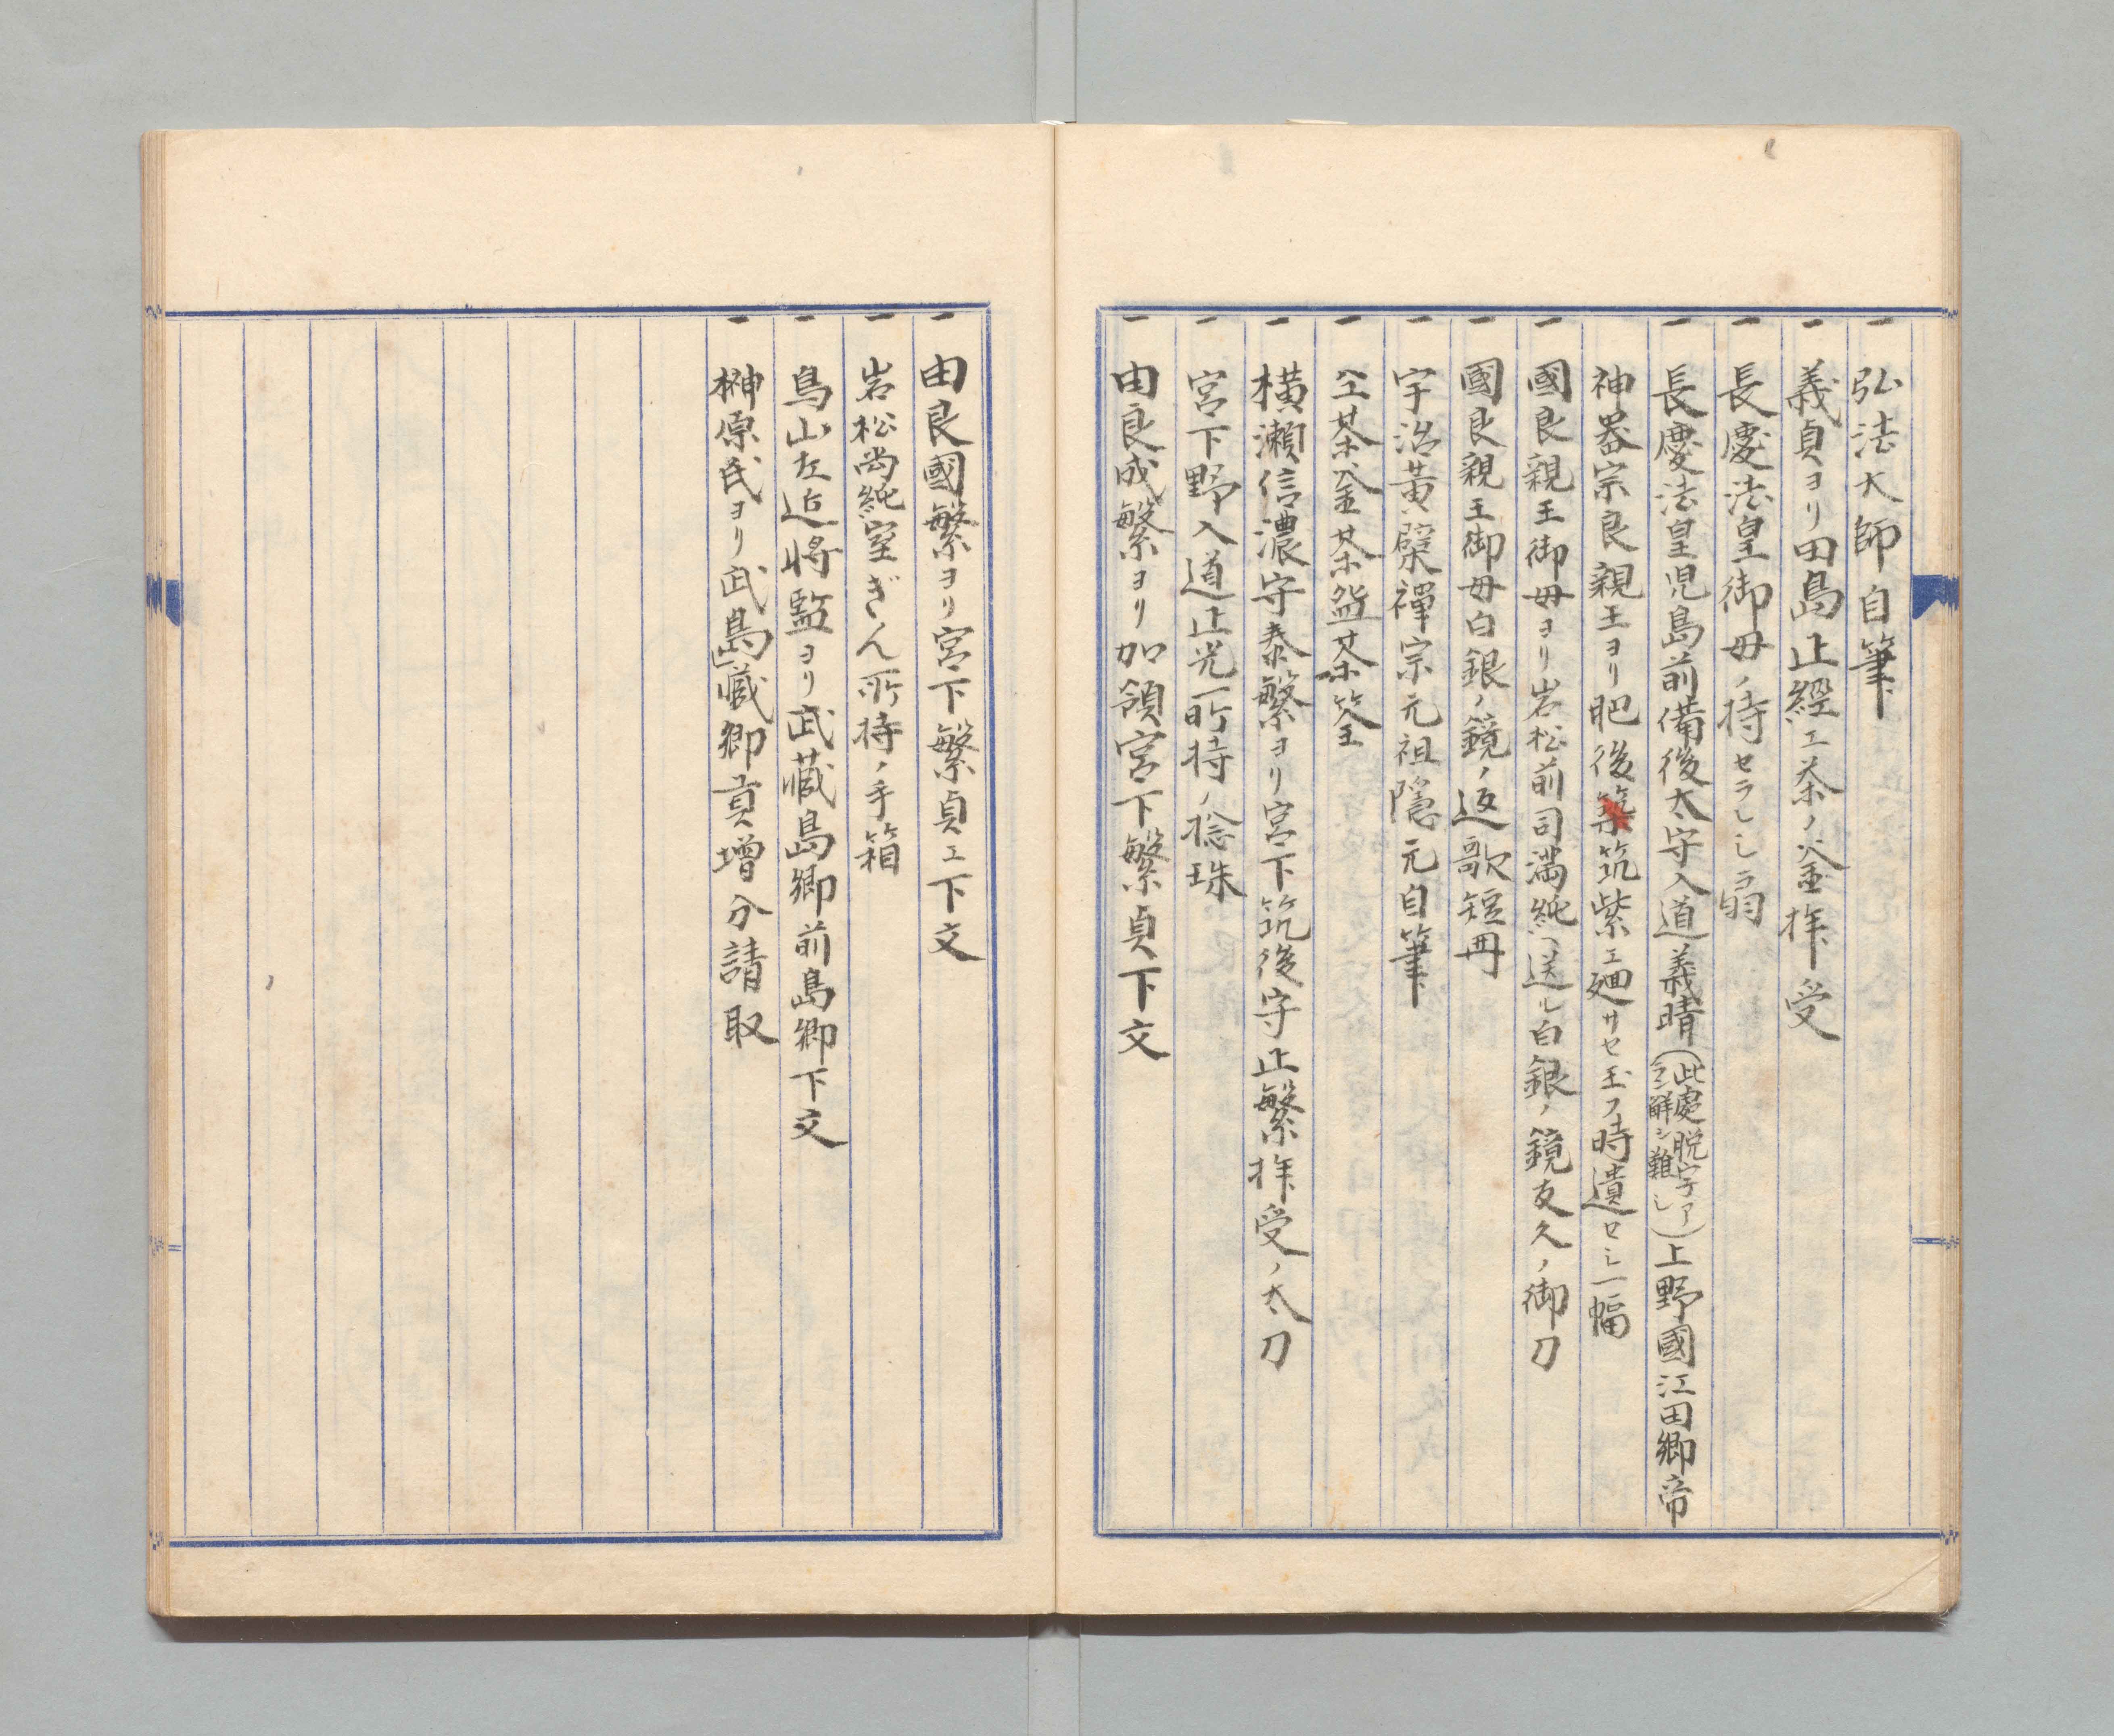 一 弘法大師自筆
一 義貞ヨリ田島止經エ茶ノ釜拝受
一 長慶法皇御母ノ持セラレシ扇
一 長慶法皇児島前備後太守入道義晴(此處脱字アラン解シ難シ)上野國江田郷帝
神器宗良親王ヨリ肥後筑紫エ廻サセ玉フ時遺セシ一幅
一 國良親王御母ヨリ岩松前司満純ヘ送ル白銀ノ鏡友久ノ御刀
一 國良親王御母白銀ノ鏡ノ返歌短冊
一 宇治黄檗禅宗元祖隠元自筆
一 仝茶釜茶盌茶筌
一 横瀬信濃守泰繁ヨリ宮下筑後守止繁拝受ノ太刀
一 宮下野入道止光所持ノ捻珠
一 由良成繁ヨリ加領宮下繁貞下文
一 由良國繁ヨリ宮下繁貞エ下文
一 岩松尚純室ぎん所持ノ手箱
一 鳥山左近将監ヨリ武蔵島郷前島郷下文
一 榊原氏ヨリ武蔵島郷貢増分請取